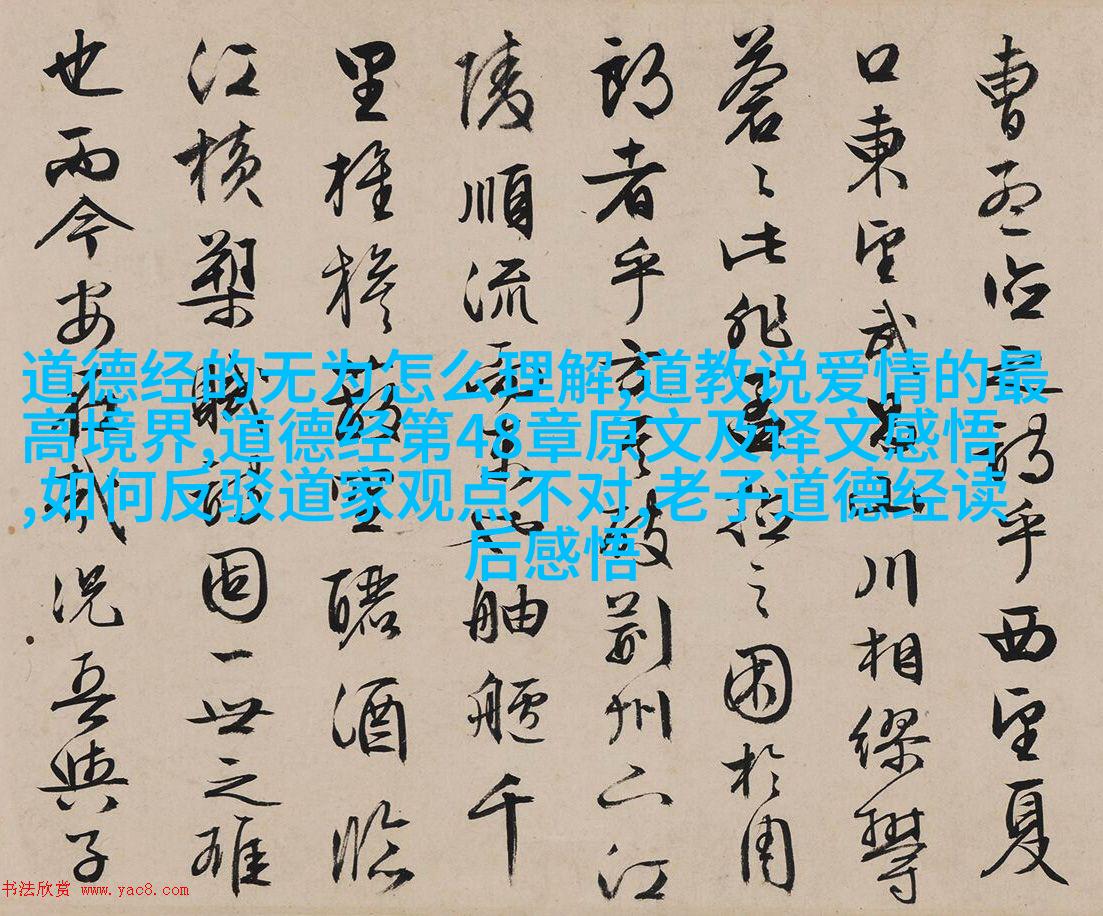 曹孟德之詩乎西望夏
口東望武昌山川相繆鬱
蒼〻此非孟德之困於周
郎者乎方其破荊州下江
陵順流而東也舳艫千
里旌旗蔽空釃酒臨
江橫槊賦詩固一世之雄
也而今安在哉況吾與子
道德经的无为怎么理解,道教说爱情的最
高境界,道德经第48章原文及译文感悟
,如何反驳道家观点不对,老子道德经读
后感悟
书法欣赏 www.yac8.com